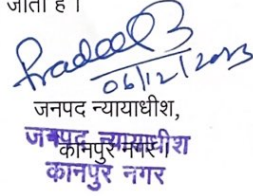 जाता है।
Pradeep
06/12/2023
जनपद न्यायाधीश,
कानपुर नगर।
जनपद न्यायाधीश
कानपुर नगर